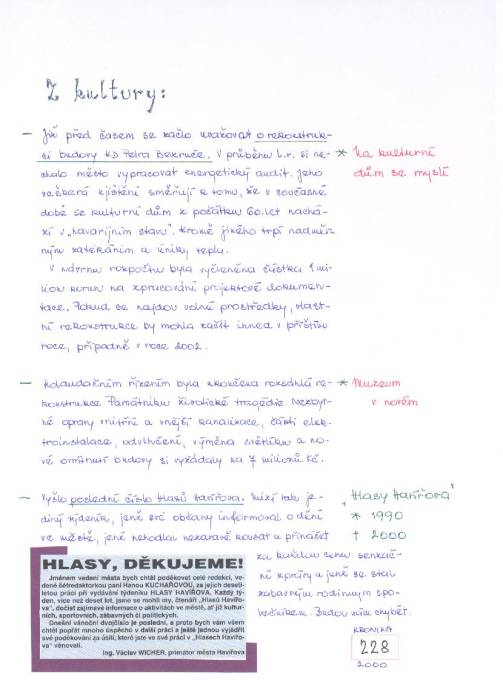 Z kultury:
– Již před časem se začlo uvažovat o rekonstruk-
ci budovy KD Petra Bezruče. V průběhu t.r. si ne-
chalo město vypracovat energetický audit. Jeho
veškerá zjištění směřují k tomu, že v současné
době se kulturní dům z počátku 60. let nachá-
zí v „havarijním stavu". Kromě jiného trpí nadměr-
ným zatékáním a úniky tepla.
V návrhu rozpočtu byla vyčleněna částka 1 mi-
lion korun na zpracování projektové dokumen-
tace. Pokud se najdou volné prostředky, vlast-
ní rekonstrukce by mohla začít ihned v příštím
roce, případně v roce 2002.
* Na kulturní
dům se myslí
– Kolaudačním řízením byla ukončena rozsáhlá re-
konstrukce Památníku životické tragédie. Nezbyt-
né opravy vnitřní a vnější kanalizace, části elek-
troinstalace, odvlhčení, výměna světlíku a no-
vé omítnutí budovy si vyžádaly na 7 milionů Kč.
* Muzeum
v novém
– Vyšlo poslední číslo Hlasů Havířova. Mizí tak je-
diný týdeník, jenž své občany informoval o dění
ve městě, jenž nehodlal nezávazně kousat a přinášet
za každou cenu senzač-
ní zprávy a jenž se stal
zábavným rodinným spo-
lečníkem. Budou nám chybět.
„Hlasy Havířova"
* 1990
† 2000
HLASY, DĚKUJEME!
Jménem vedení města bych chtěl poděkovat celé redakci, ve-
dené šéfredaktorkou paní Hanou KUCHAŘOVOU, za jejich deseti-
letou práci při vydávání týdeníku HLASY HAVÍŘOVA. Každý tý-
den, více než deset let, jsme se mohli my, čtenáři „Hlasů Havířo-
va", dočíst zajímavé informace o aktivitách ve městě, ať již kultur-
ních, sportovních, zábavných či politických.
Dnešní vánoční dvojčíslo je poslední, a proto bych vám všem
chtěl popřát mnoho úspěchů v další práci a ještě jednou vyjádřit
své poděkování za úsilí, které jste ve své práci v „Hlasech Havířo-
va" věnovali.
Ing. Václav WICHER, primátor města Havířova
KRONIKA
228
2000